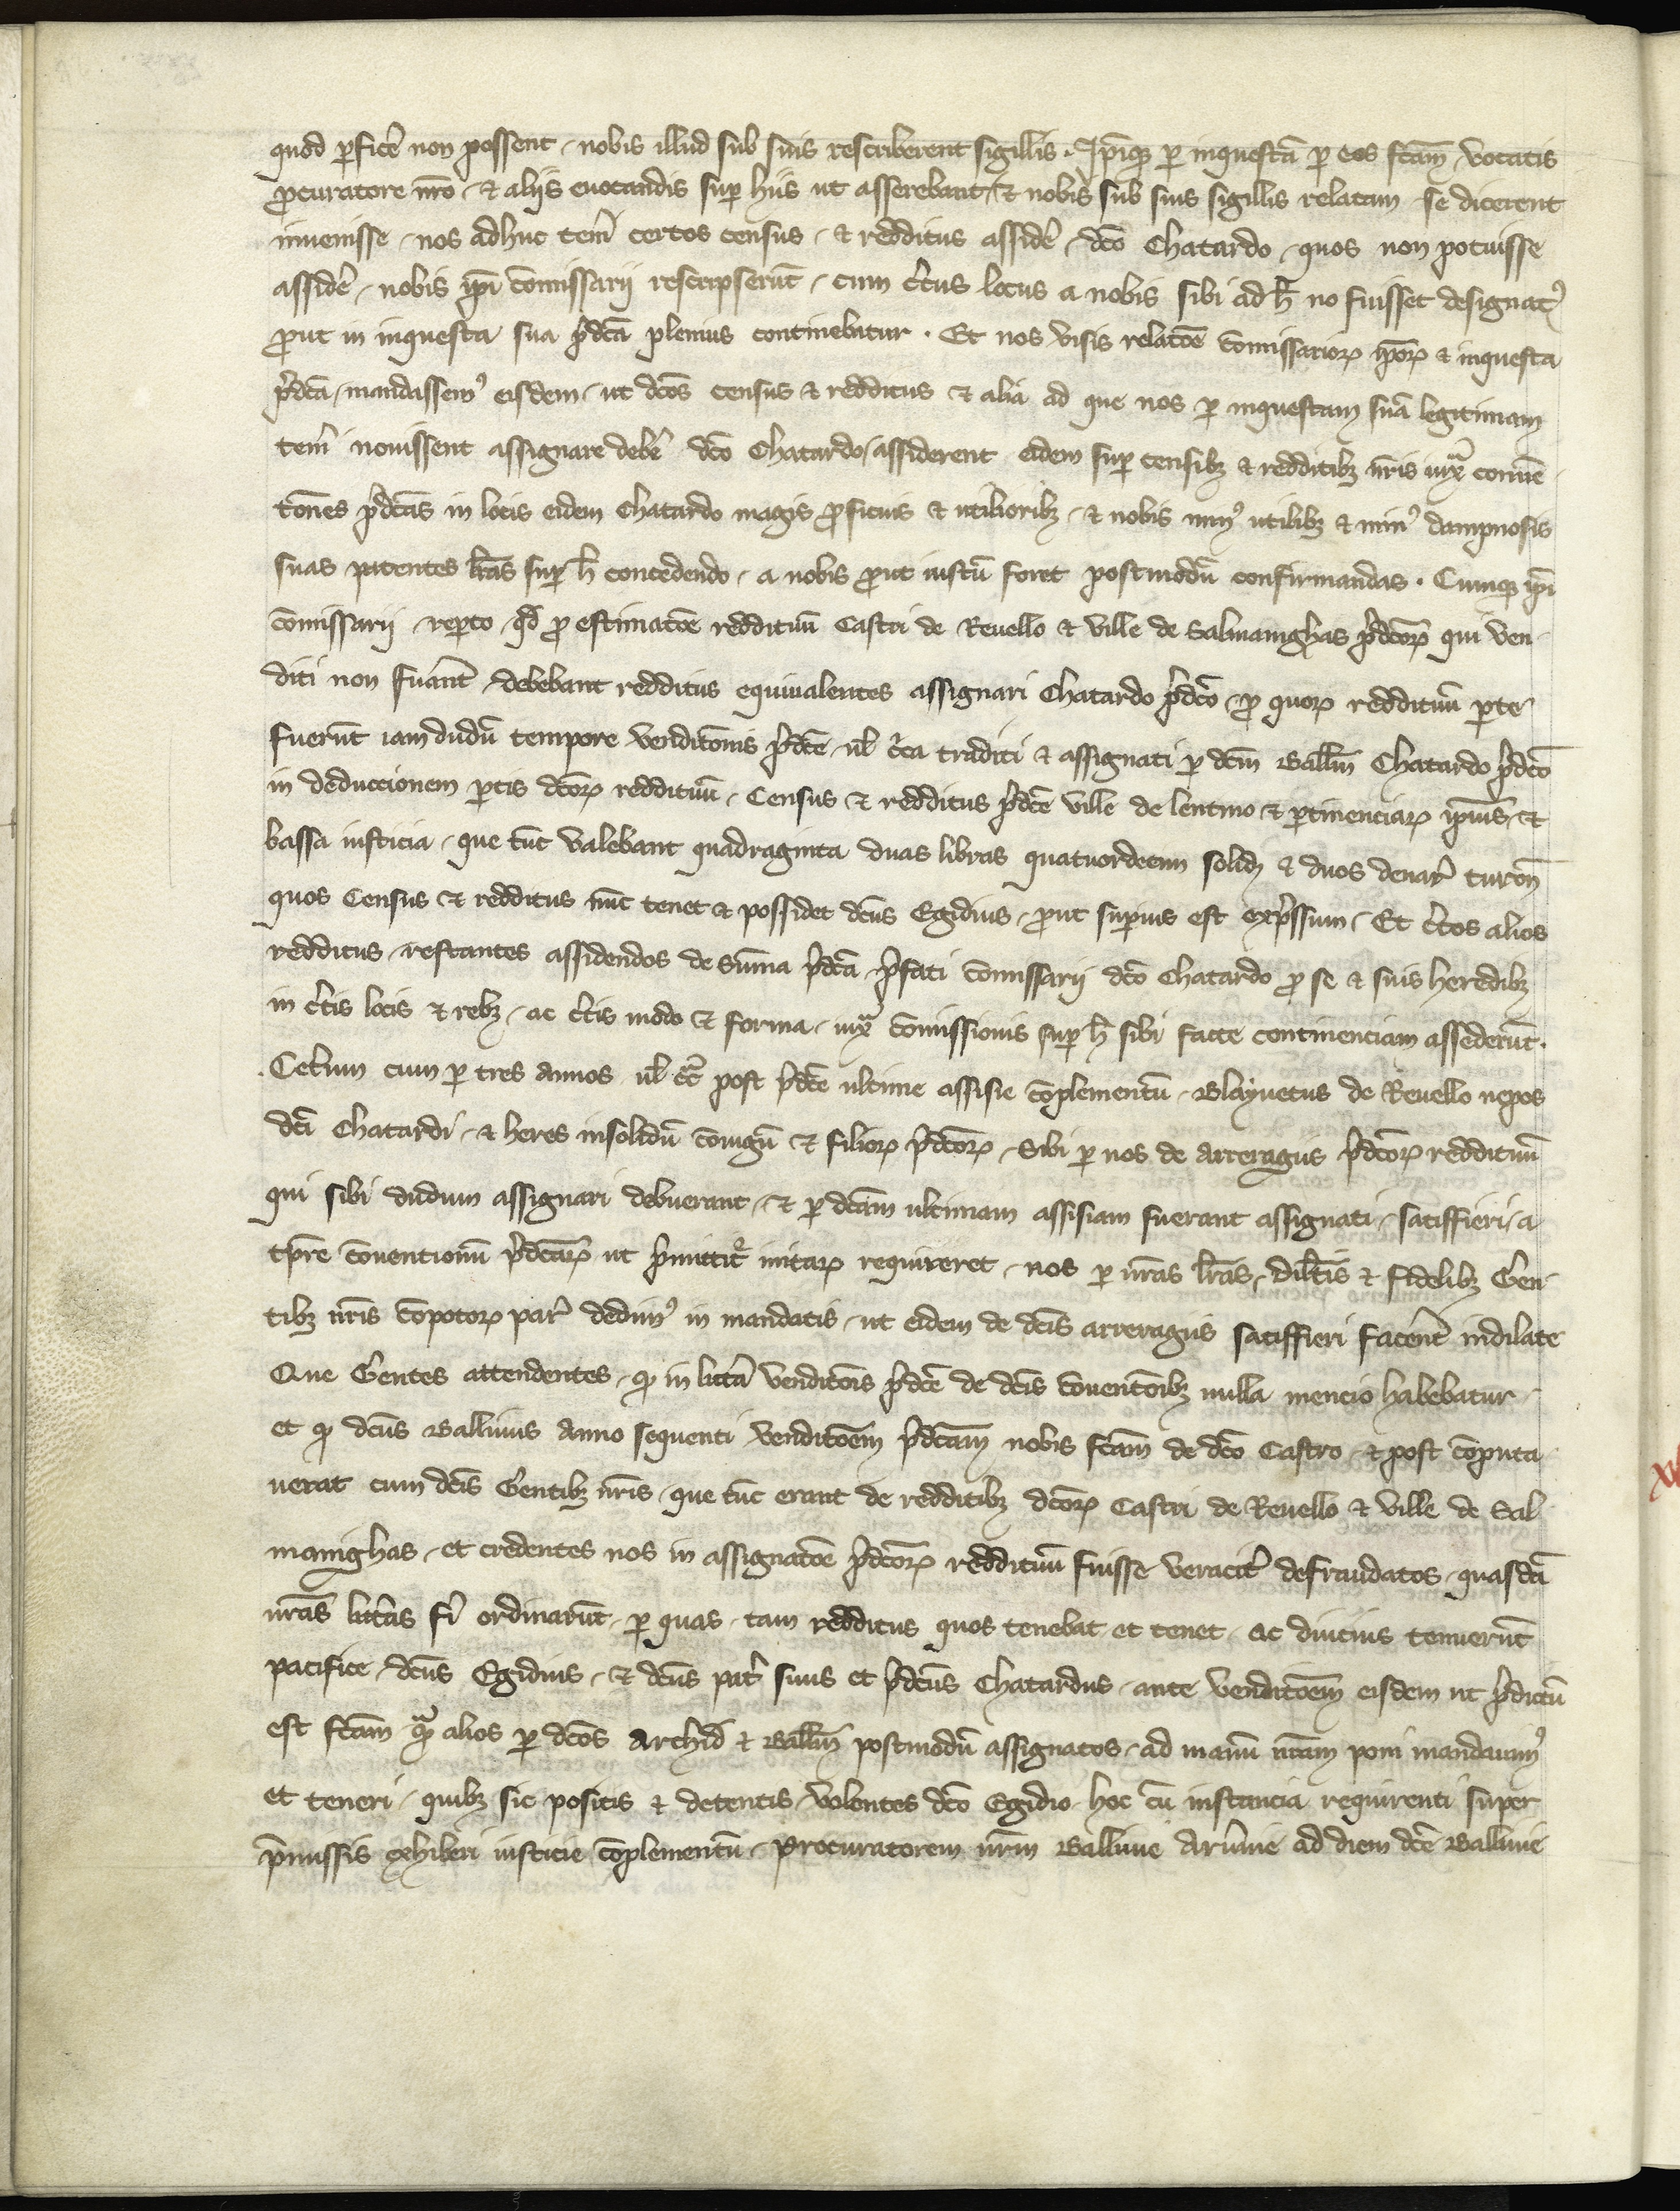 quod ꝑficẽ non possent / nobis illud sub suis rescriberent sigillis . Ip̃iqꝫ ꝑ inquestã ꝑ eos fcãm / vocatis
ꝓcuratore nr̃o / & aliis euocandis suꝑ hiis ut asserebant / & nobis sub suis sigillis relatam / se dicerent
inuenisse / nos adhuc tenẽi certos census / & redditus assidẽ / dc̃o Chatardo / quos non potuisse
assidẽ / nobis ip̃i com̃issarij rescripserũt / cum c̃tus locus a nobis sibi ad h̃ nõ fuisset designatꝰ
ꝓut in inquesta sua p̃dc̃a plenius continebatur . Et nos visis relatõe com̃issarioꝝ ip̃oꝝ & inquesta
p̃dc̃a / mandassemꝰ eisdem / ut dc̃os census & redditus & alia ad que nos ꝑ inquestam suã legitimam
tenẽi nouissent assignare debẽ dc̃o Chatardo / assiderent eidem suꝑ censibꝫ & redditibꝫ nr̃is iuxᵃ conuẽ
tões p̃dc̃as in locis eidem Chatardo magis ꝓficuis & utilioribꝫ / & nobis minꝰ utilibꝫ & minꝰ dampnosis
suas patentes lr̃as suꝑ h̃ concedendo / a nobis ꝓut iustũ foret postmodũ confirmandas . Cumqꝫ ip̃i
com̃issarij reꝑto qd̃ ꝓ estimatõe reddituũ Castri de Reuello & ville de Salmanighas p̃dc̃oꝝ qui ven
diti non fuãnt / debebant redditus equiualentes assignari Chatardo p̃dc̃o / ꝓ quoꝝ reddituũ ꝑte
fuerũt iamdudũ tempore venditõnis p̃dc̃e ul̃ c̃ca traditi & assignati ꝑ dc̃m Ball̃m Chatardo p̃dc̃o
in deduccionem ꝑtis dc̃oꝝ reddituũ / Census & redditus p̃dc̃e ville de lentino & ꝑtinenciaꝝ ip̃ius / &
bassa iusticia / que tũc valebant quadraginta duas libras quatuordecim solidꝫ & duos denar̃ turoñ
quos Census & redditus nũc tenet & possidet dc̃us Egidius / ꝓut suꝑius est exp̃ssum / Et c̃tos alios
redditus / restantes assidendos de sum̃a p̃dc̃a / p̃fati com̃issarij dc̃o Chatardo ꝓ se & suis heredibꝫ
in c̃tis locis & rebꝫ / ac c̃tis modo & forma / iuxᵃ com̃issionis suꝑ h̃ sibi facte continenciam assederũt .
Cet̃um cum ꝑ tres annos ul̃ cĩc post p̃dc̃e ultime assisie cõplementũ / Blaynetus de Reuello nepos
dc̃i Chatardi / & heres insolidũ coniugũ & filioꝝ p̃dc̃oꝝ / Sibi ꝑ nos de arreragiis p̃dc̃oꝝ reddituũ
qui sibi dudum assignari debuerant / & ꝑ dc̃am ultimam assisiam fuerant assignati / satisffieri / a
tp̃re conuentionũ p̃dc̃aꝝ ut p̃mittit̃ initaꝝ requireret / nos ꝑ nr̃as lr̃as / dilc̃is & fidelibꝫ Gen
tibꝫ nr̃is cõpotoꝝ par̃ dedimꝰ in mandatis / ut eidem de dc̃is arreragiis satisffieri facẽnt indilate
Que Gentes attendentes / ꝙ in litt̃a venditõis p̃dc̃e de dc̃is conuentõibꝫ nulla mencio habebatur /
et ꝙ dc̃us Balliuus anno sequenti venditõem p̃dc̃am nobis fc̃am de dc̃o Castro / & post cõputa
uerat cum dc̃is Gentibꝫ nr̃is / que tũc erant de redditibꝫ dc̃oꝝ Castri de Reuello & ville de Sal
manighas / et credentes nos in assignatõe p̃dc̃oꝝ reddituũ fuisse veracit̃ defraudatos / quasdã
nr̃as litt̃as fĩ ordinarũt / ꝑ quas / tam redditus quos tenebat et tenet / ac diucius tenuerũt
pacifice / dc̃us Egidius / & dc̃us pat̃ suus et p̃dc̃us Chatardus / ante venditõem eisdem ut p̃dictũ
est fc̃am qᵃꝫ alios ꝑ dc̃os Archid̃ & Ball̃m postmodũ assignatos / ad manũ nr̃am poni mandauimꝰ
et teneri / quibꝫ sic positis & detentis / volentes dc̃o Egidio / hoc cũ instancia requirenti super
p̃missis exhiberi iusticie cõplementũ / Procuratorem nr̃m Balliuie Aruernie ad diem dc̃e Balliuie